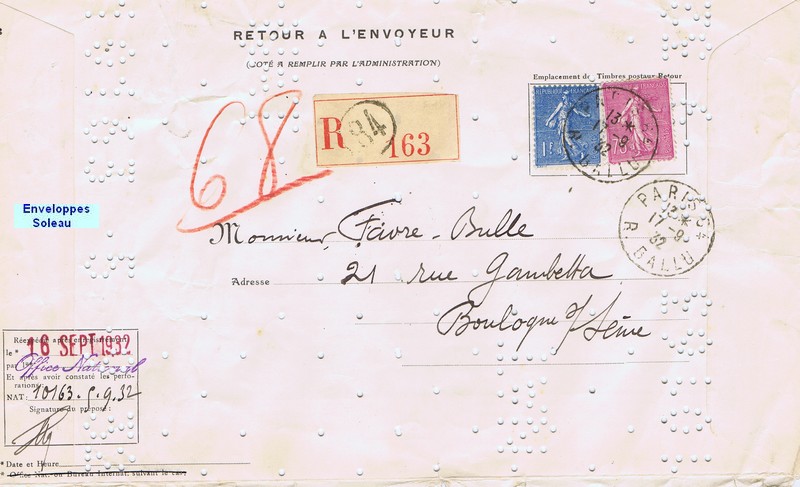 RETOUR A L'ENVOYEUR
(COTÉ A REMPLIR PAR L'ADMINISTRATION)
Emplacement des Timbres postaux-Retour
RÉPUBLIQUE FRANÇAISE
68
R 84 163
PARIS 84
13*
17-9
32
R BALLU
Enveloppes
Soleau
Monsieur Favre-Bulle
Adresse
21 rue Gambetta
Boulogne s/ Seine
Réexpédié après enregistrement
le * 16 SEPT 1932
par Office National
Et après avoir constaté les perfo-
rations:
NAT: 10163.5.9.32
Signature du préposé:
* Date et Heure
* Office Nat. ou Bureau Internat. suivant le cas.